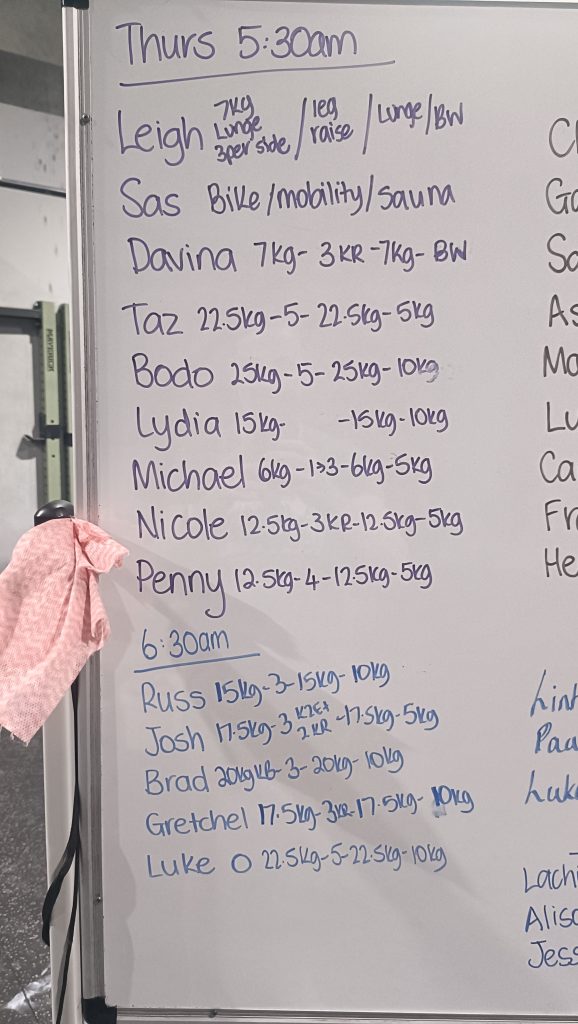 Thurs 5:30am
Leigh 7kg Lunge 3per side / leg raise / Lunge / BW
Sas Bike/mobility/sauna
Davina 7kg- 3KR-7kg- BW
Taz 22.5kg-5- 22.5kg-5kg
Bodo 25kg-5-25kg-10kg
Lydia 15kg- -15kg-10kg
Michael 6kg-1>3-6kg-5kg
Nicole 12.5kg-3KR-12.5kg-5kg
Penny 12.5kg-4-12.5kg-5kg
6:30am
Russ 15kg-3-15kg-10kg
Josh 17.5kg-3 2KR -17.5kg-5kg
Brad 20kgKB-3-20kg-10kg
Gretchel 17.5kg-3KR-17.5kg- 10kg
Luke O 22.5kg-5-22.5kg-10kg
C
Ga
Sa
As
Ma
Lu
Ca
Fr
He
Lint
Pau
Luke
Lachi
Aliso
Jess
MAVERICK